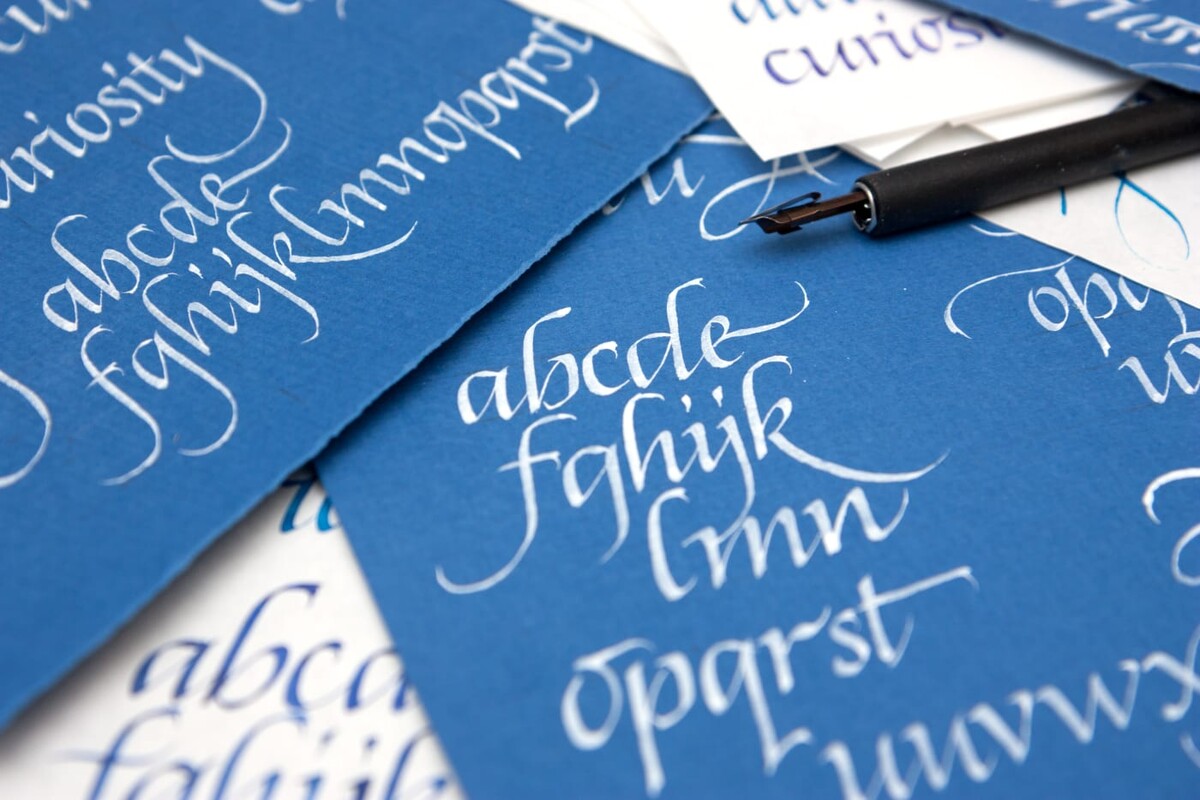 curiosity
abcde
fghijklmnopqrst
curios
abcde
fghijk
lmn
opqrst
uvwx
abcd
fghijk